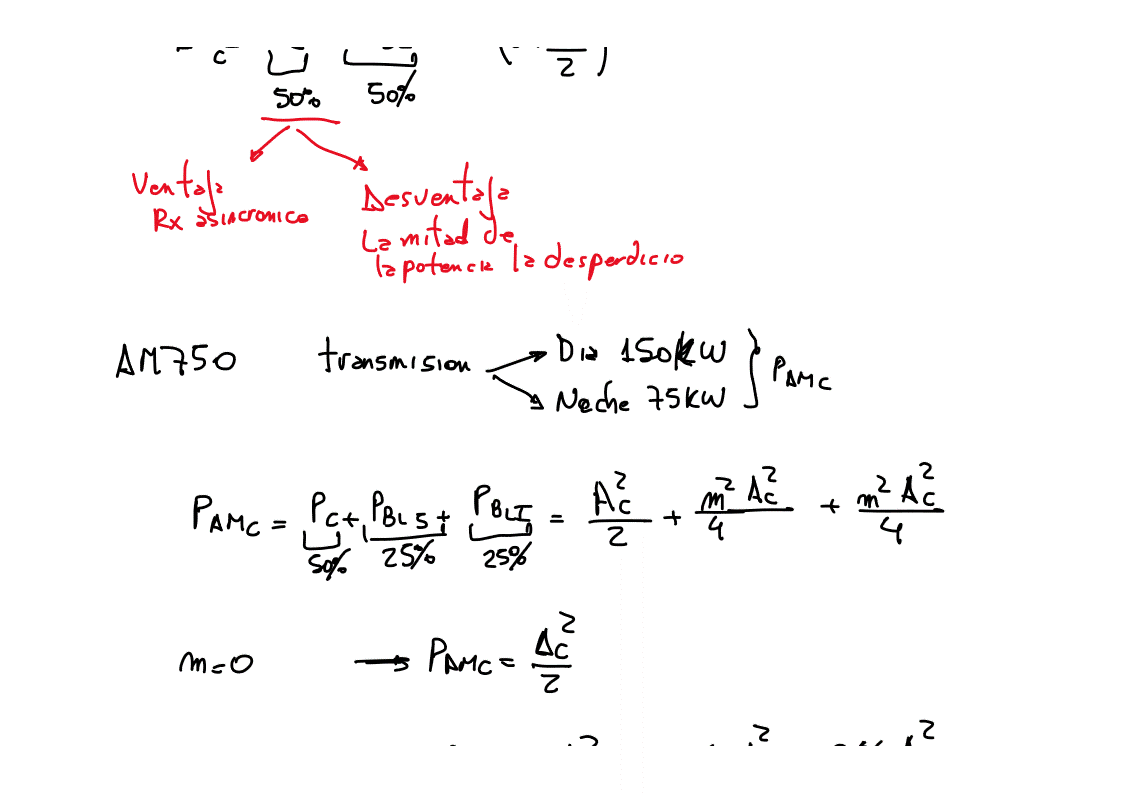 c 2
50% 50%
Ventaja
Rx asincronico
Desventaja
La mitad de
la potencia la desperdicio
AM750 transmision Dia 150KW
Noche 75KW
P_AMC
P_AMC = P_C + P_BLS + P_BLI = A_C²/2 + m² A_C²/4 + m² A_C²/4
50% 25% 25%
m=0 → P_AMC = A_C²/2